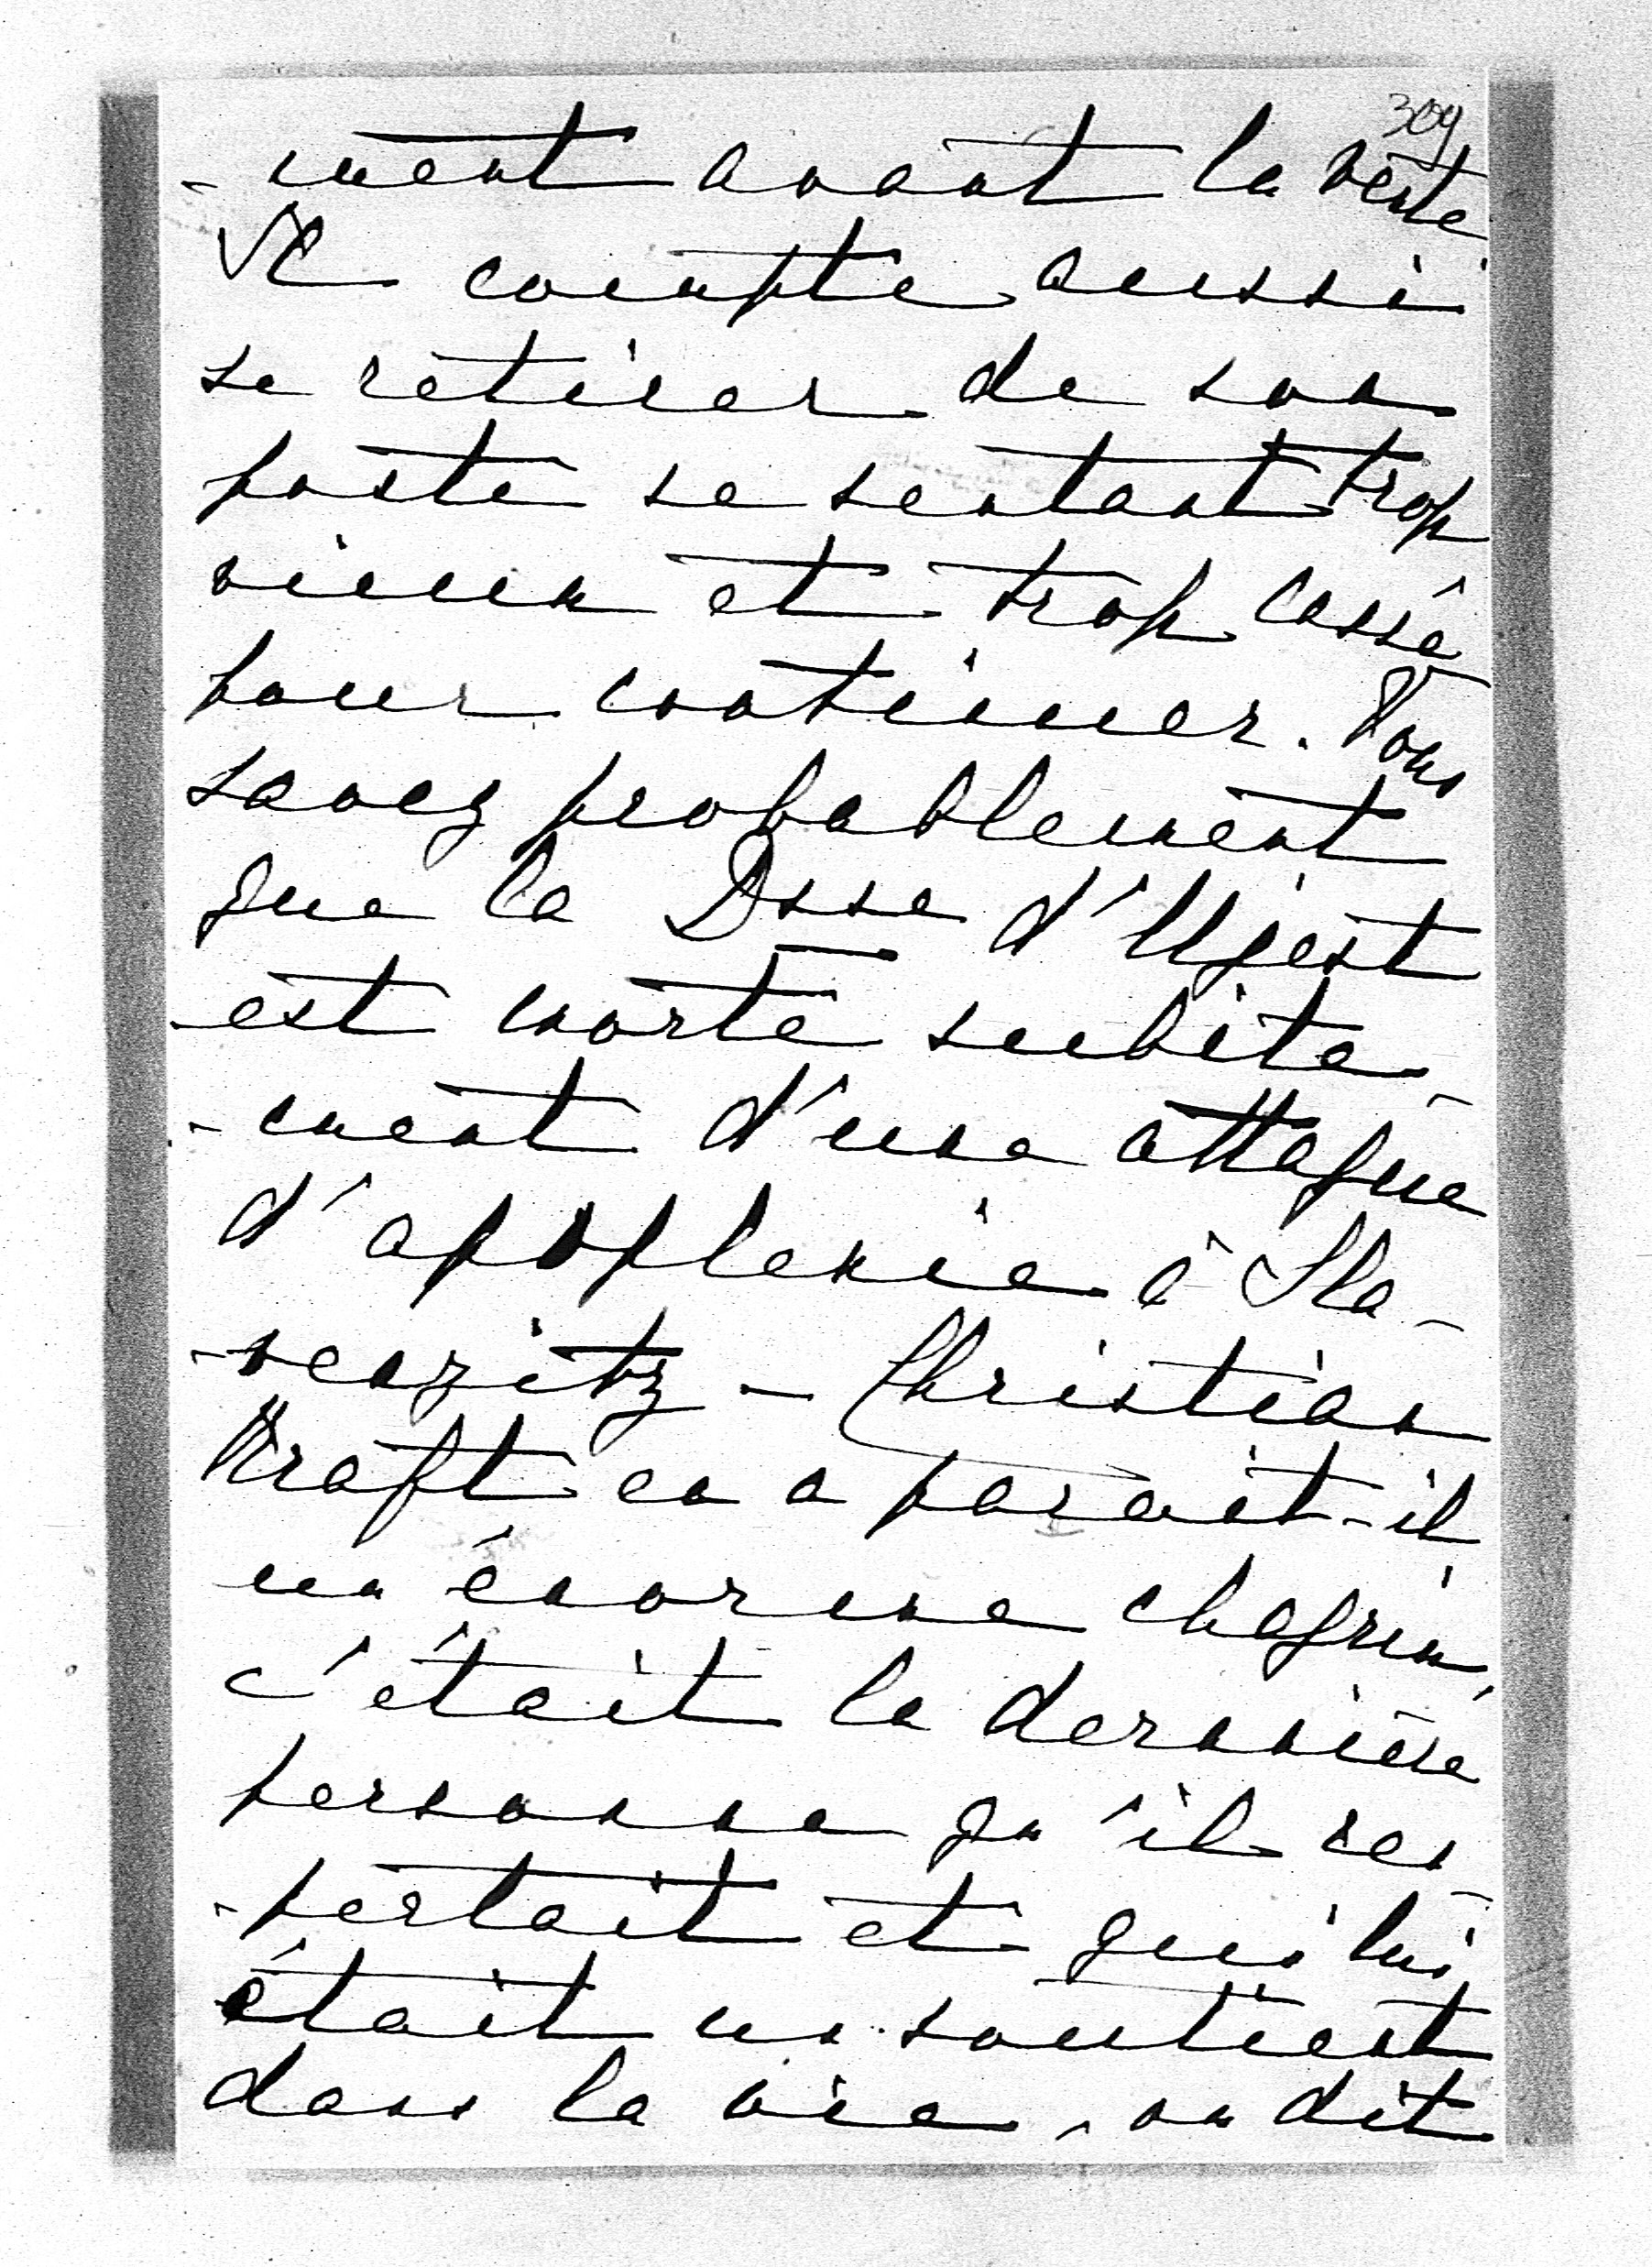 309
-ment avant la vente
Il compte aussi
se retirer de son
poste se sentant trop
vieux et trop cassé
pour continuer. Vous
savez probablement
que la Dsse d'Ujest
est morte subite-
-ment d'une attaque
d'apoplexie à Sla-
-wenzitz - Christian
Kraft en a parait-il
un énorme chagrin,
c'était la dernière
personne qu'il res-
-pectait et qui lui
était un soutient
dans la vie, on dit